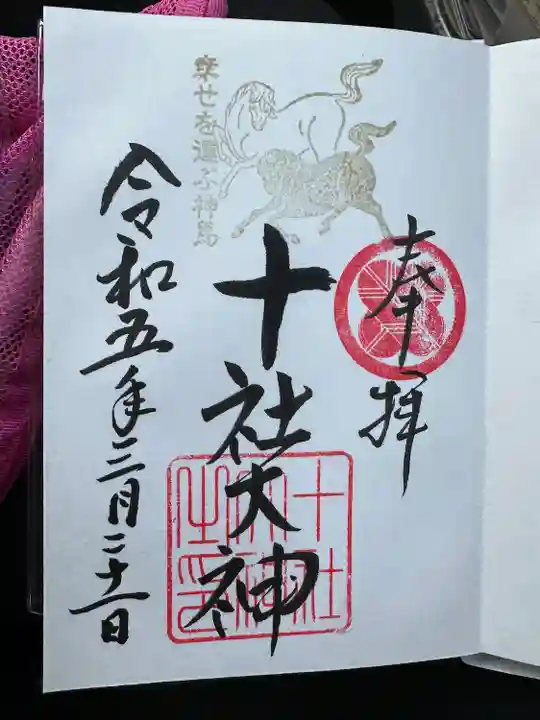 奉拝
十社大神
幸せを運ぶ神馬
令和五年三月二十一日
十社
大神
之印